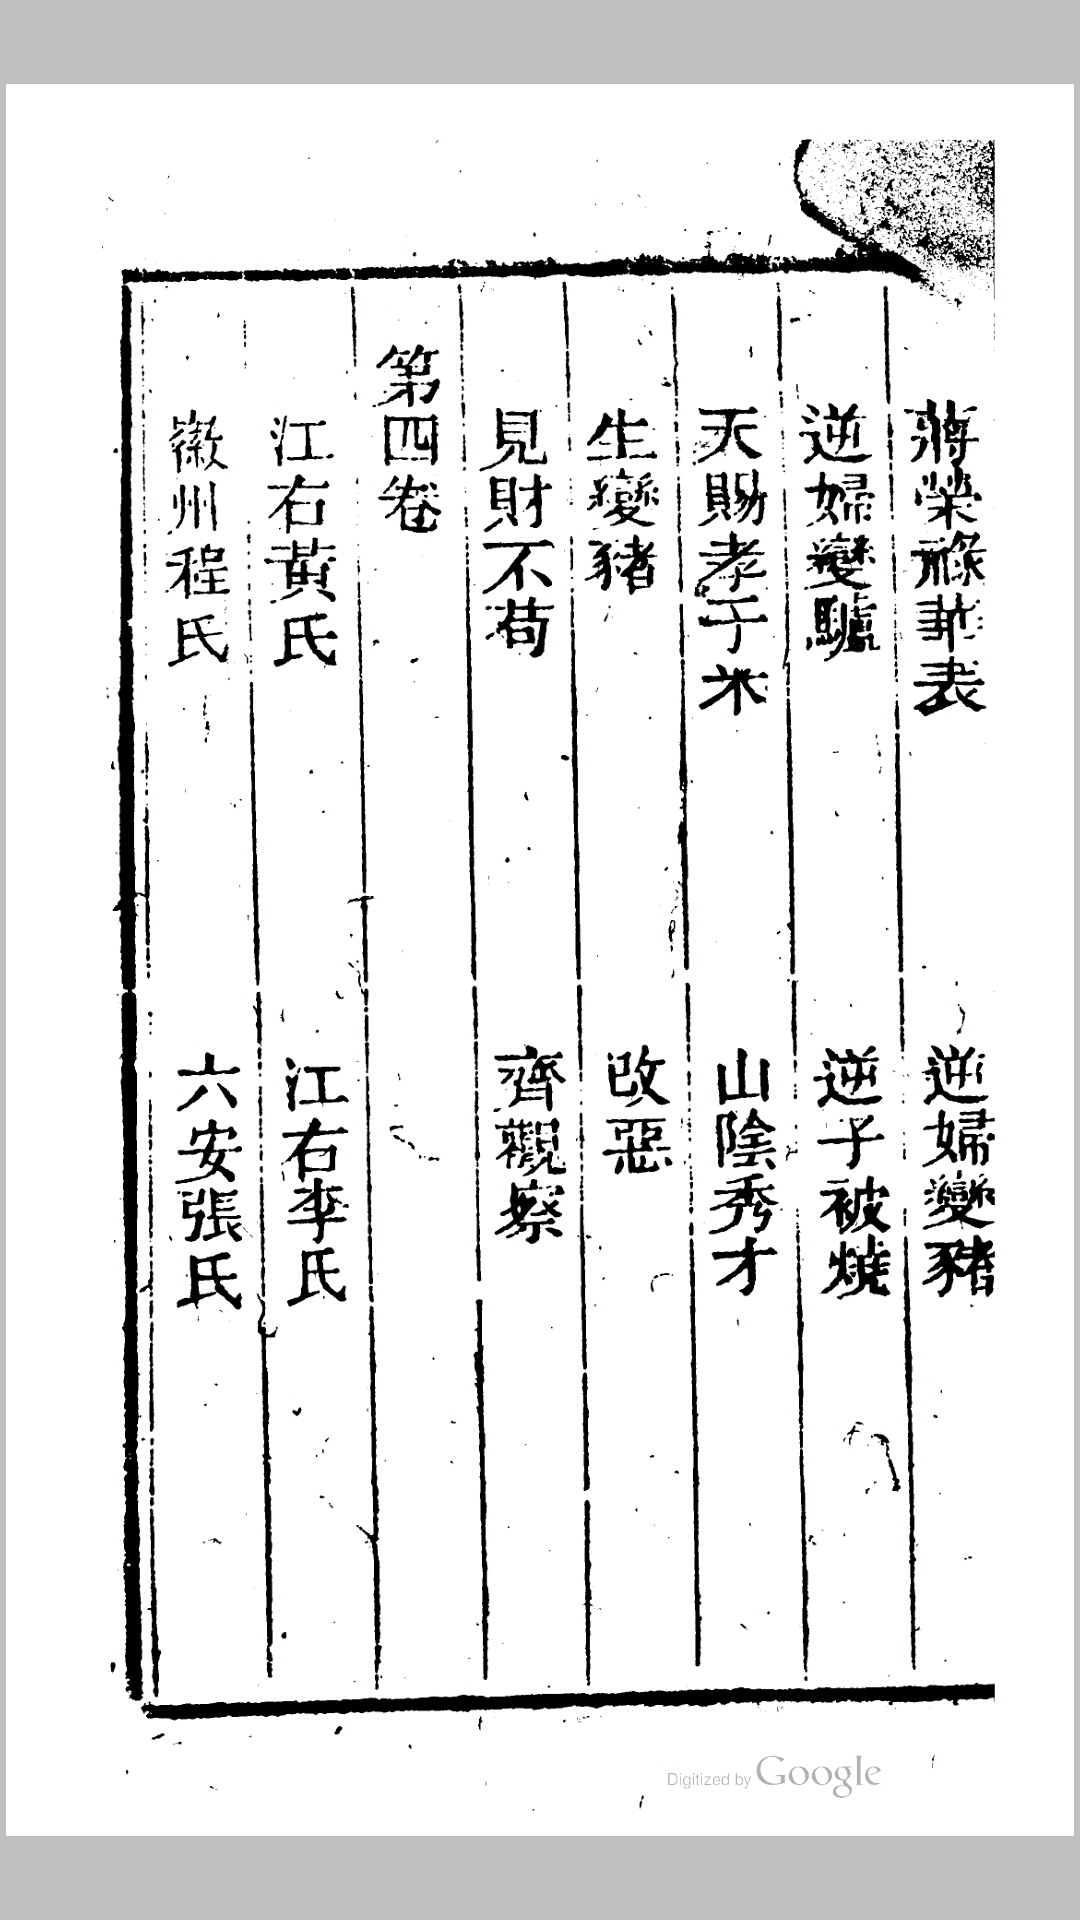 蔣榮祿華表　逆婦變豬
逆婦變驢　逆子被燒
天賜孝子米　山陰秀才
生變豬　改惡
見財不苟　齊觀察
第四卷
江右黃氏　江右李氏
徽州程氏　六安張氏
Digitized by Google